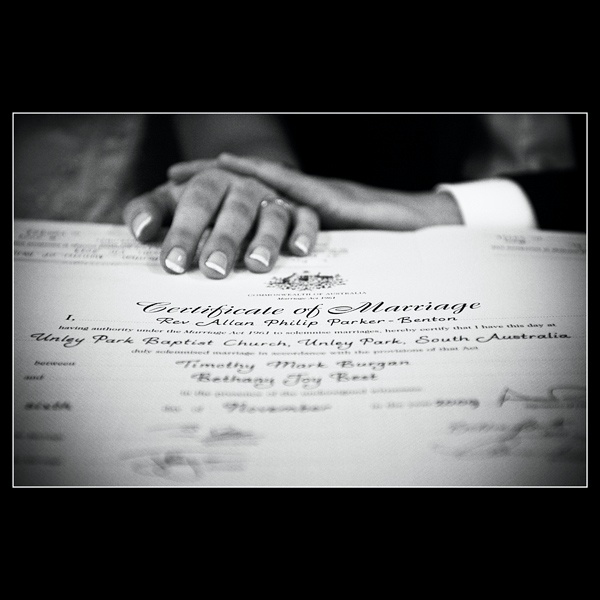 COMMONWEALTH OF AUSTRALIA
Marriage Act 1961
Certificate of Marriage
I, Rev Allan Philip Parker-Benton
having authority under the Marriage Act 1961 to solemnise marriages, hereby certify that I have this day at
Unley Park Baptist Church, Unley Park, South Australia
duly solemnised marriage in accordance with the provisions of that Act
between Timothy Mark Burgan
and Bethany Joy Best
in the presence of the undersigned witnesses
sixth day of November in the year 2009